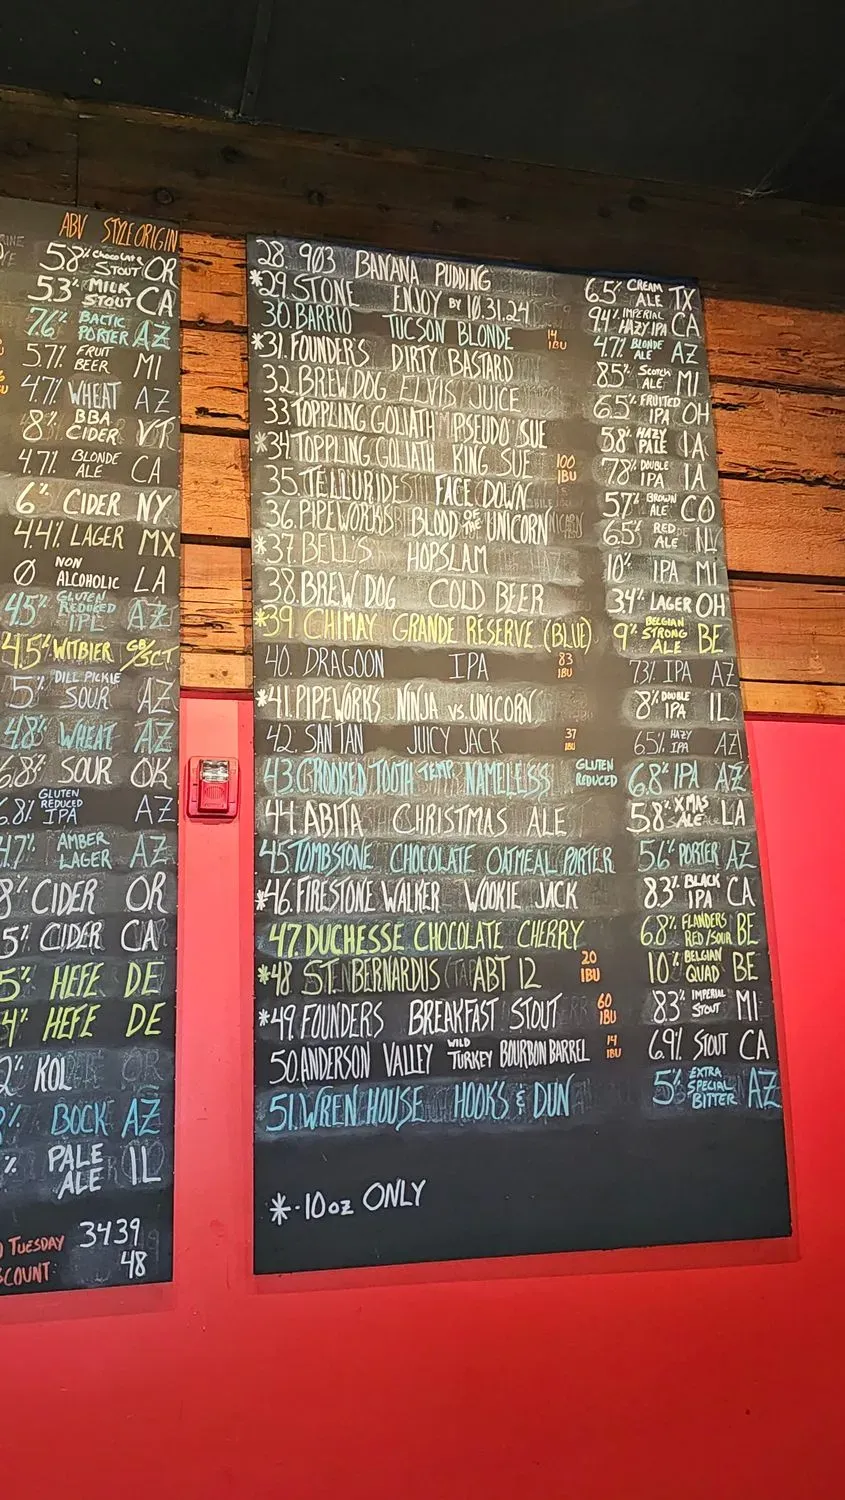 ABV STYLE ORIGIN
5.8% Chocolate STOUT OR
5.3% MILK STOUT CA
7.6% BALTIC PORTER AZ
5.7% FRUIT BEER MI
4.7% WHEAT AZ
8% BBA CIDER VT
4.7% BLONDE ALE CA
6% CIDER NY
4.4% LAGER MX
Ø NON ALCOHOLIC LA
4.5% GLUTEN REDUCED IPL AZ
4.5% WITBIER GB/SCT
5% DILL PICKLE SOUR AZ
4.8% WHEAT AZ
6.8% SOUR OK
6.8% GLUTEN REDUCED IPA AZ
4.7% AMBER LAGER AZ
8% CIDER OR
5% CIDER CA
5% HEFE DE
4% HEFE DE
2% KOL
% BOCK AZ
% PALE ALE IL
TUESDAY 3439
COUNT 48
28. 903 BANANA PUDDING 6.5% CREAM ALE TX
*29. STONE ENJOY BY 10.31.24 9.4% IMPERIAL HAZY IPA CA
30. BARRIO TUCSON BLONDE 14 IBU 4.7% BLONDE ALE AZ
*31. FOUNDERS DIRTY BASTARD 8.5% SCOTCH ALE MI
32. BREWDOG ELVIS JUICE 6.5% FRUITED IPA OH
33. TOPPLING GOLIATH PSEUDO SUE 5.8% HAZY PALE IA
*34. TOPPLING GOLIATH KING SUE 100 IBU 7.8% DOUBLE IPA IA
35. TELLURIDE FACE DOWN 5.7% BROWN ALE CO
36. PIPEWORKS BLOOD OF THE UNICORN 6.5% RED ALE
*37. BELL'S HOPSLAM 10% IPA MI
38. BREW DOG COLD BEER 3.4% LAGER OH
*39. CHIMAY GRANDE RESERVE (BLUE) 9% BELGIAN STRONG ALE BE
40. DRAGOON IPA 83 IBU 7.3% IPA AZ
*41. PIPEWORKS NINJA VS. UNICORN 8% DOUBLE IPA IL
42. SAN TAN JUICY JACK 37 IBU 6.5% HAZY IPA AZ
43. CROOKED TOOTH TEMP. NAMELESS GLUTEN REDUCED 6.8% IPA AZ
44. ABITA CHRISTMAS ALE 5.8% XMAS ALE LA
45. TOMBSTONE CHOCOLATE OATMEAL PORTER 5.6% PORTER AZ
*46. FIRESTONE WALKER WOOKIE JACK 8.3% BLACK IPA CA
47. DUCHESSE CHOCOLATE CHERRY 6.8% FLANDERS RED/SOUR BE
*48 ST. BERNARDUS ABT 12 20 IBU 10% BELGIAN QUAD BE
*49. FOUNDERS BREAKFAST STOUT 60 IBU 8.3% IMPERIAL STOUT MI
50. ANDERSON VALLEY WILD TURKEY BOURBON BARREL 14 IBU 6.9% STOUT CA
51. WREN HOUSE HOOKS & DUN 5% EXTRA SPECIAL BITTER AZ
*-10oz ONLY